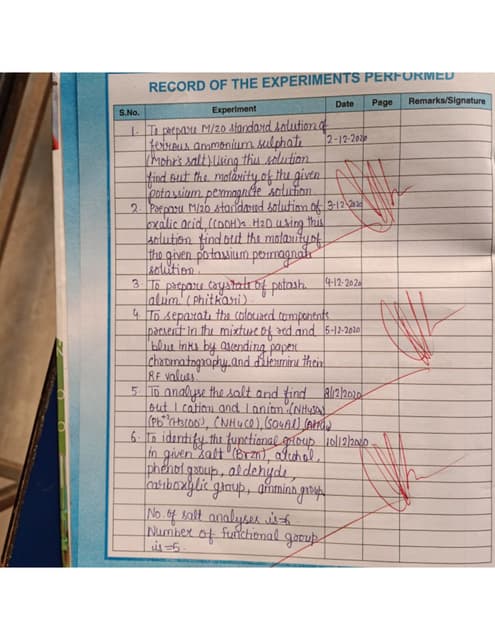 RECORD OF THE EXPERIMENTS PERFORMED
S.No. Experiment Date Page Remarks/Signature
1. To prepare M/20 standard solution of
ferrous ammonium sulphate 2-12-2020
(Mohr's salt) Using this solution
find out the molarity of the given
potassium permagnate solution.
2. Prepare M/20 standared solution of 3-12-2020
oxalic acid, (COOH)2 H2O using this
solution find out the molarity of
the given potassium permagnate
solution.
3 To prepare crystals of potash 4-12-2020
alum (Phitkari)
4. To separate the coloured components
present in the mixture of red and 5-12-2020
blue inks by ascending paper
chromatography and determine their
RF values.
5. To analyse the salt and find 8/12/2020
out 1 cation and 1 anion
6. To identify the functional group 10/12/2020
in given salt alcohol,
phenol group, aldehyde,
carboxylic group, ammino group
No. of salt analyses is=6
Number of functional group
is=5.